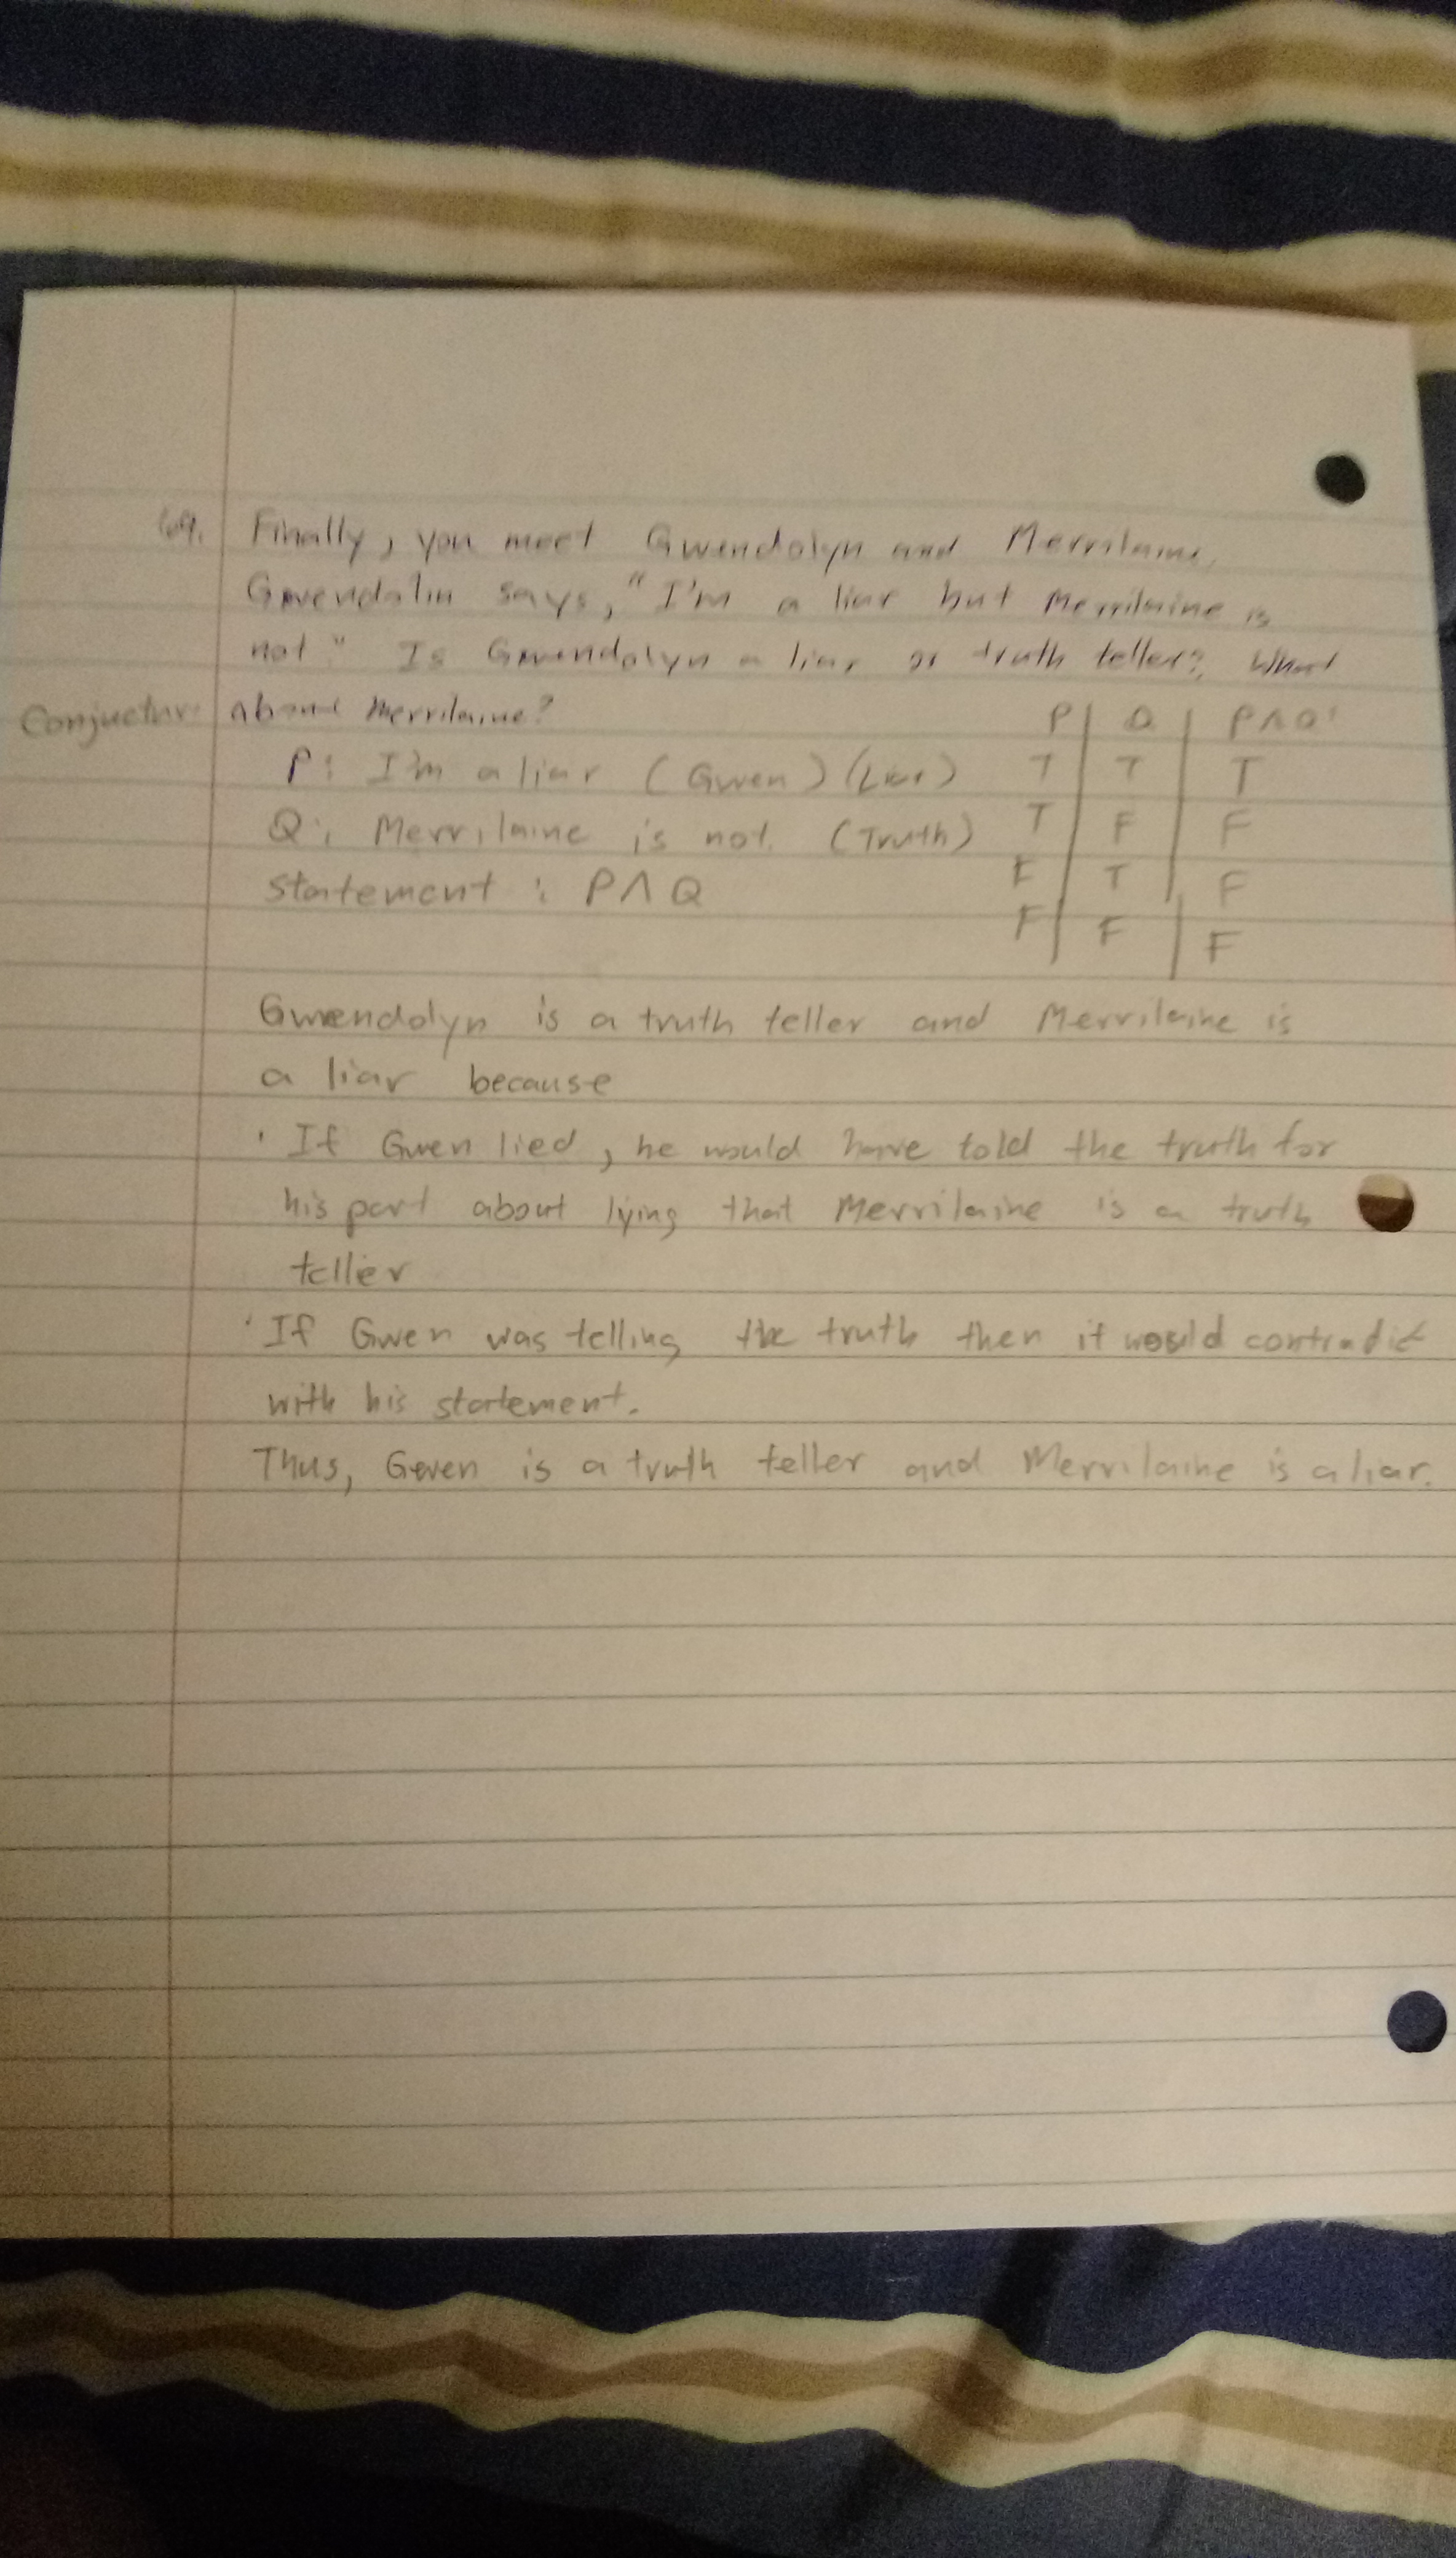 69. Finally, you meet Gwendolyn and Merrilaine,
Gwendolin says, "I'm a liar but Merrilaine is
not" Is Gwendolyn a liar or truth teller? What
about Merrilaine?
P | Q | P∧Q
P: I'm a liar (Gwen) (Liar) T | T | T
Q: Merrilaine is not. (Truth) T | F | F
statement: P∧Q F | T | F
F | F | F
Gwendolyn is a truth teller and Merrilaine is
a liar because
· If Gwen lied, he would have told the truth for
his part about lying that Merrilaine is a truth
teller
· If Gwen was telling the truth then it would contradict
with his statement.
Thus, Gwen is a truth teller and Merrilaine is a liar.